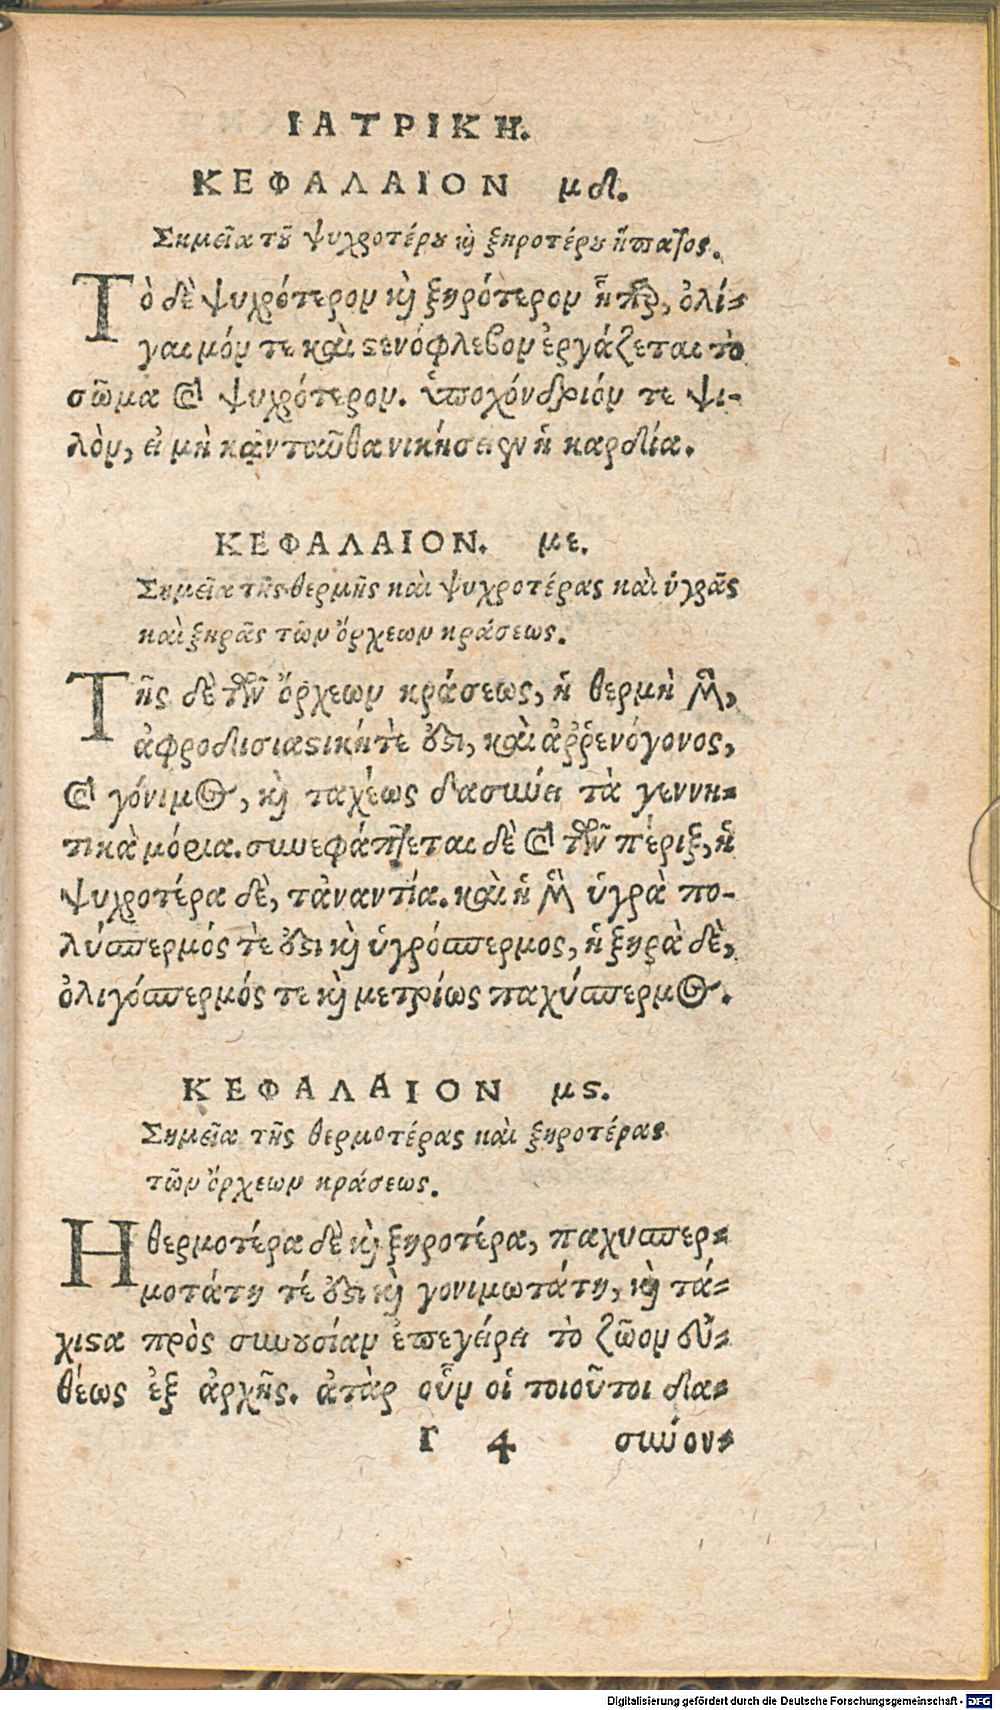 ΙΑΤΡΙΚΗ.
ΚΕΦΑΛΑΙΟΝ μδ.
Σημεῖα τοῦ ψυχροτέρου καὶ ξηροτέρου ἥπατος.
Τὸ δὲ ψυχρότερον καὶ ξηρότερον ἧπαρ, ὀλί-
γαιμόν τε καὶ στενόφλεβον ἐργάζεται τὸ
σῶμα καὶ ψυχρότερον. ὑποχόνδριόν τε ψι-
λὸν, εἰ μὴ κᾀνταῦθα νικήσειεν ἡ καρδία.
ΚΕΦΑΛΑΙΟΝ. με.
Σημεῖα τῆς θερμῆς καὶ ψυχροτέρας καὶ ὑγρᾶς
καὶ ξηρᾶς τῶν ὄρχεων κράσεως.
Τῆς δὲ τῶν ὄρχεων κράσεως, ἡ θερμὴ μὲν,
ἀφροδισιαστική τὲ ἐστι, καὶ ἀῤῥενόγονος,
καὶ γόνιμος, καὶ ταχέως δασύνει τὰ γεννη-
τικὰ μόρια. συνεφάπτεται δὲ καὶ τῶν πέριξ, ἡ
ψυχροτέρα δὲ, τἀναντία. καὶ ἡ μὲν ὑγρὰ πο-
λύσπερμός τὲ ἐστι καὶ ὑγρόσπερμος, ἡ ξηρὰ δὲ,
ὀλιγόσπερμός τε καὶ μετρίως παχύσπερμος.
ΚΕΦΑΛΑΙΟΝ μς.
Σημεῖα τῆς θερμοτέρας καὶ ξηροτέρας
τῶν ὄρχεων κράσεως.
Η θερμοτέρα δὲ καὶ ξηροτέρα, παχυσπερ-
μοτάτη τέ ἐστι καὶ γονιμωτάτη, καὶ τά-
χιστα πρὸς συνουσίαν ἐπεγείρει τὸ ζῶον εὐ-
θέως ἐξ ἀρχῆς. ἀτὰρ οὖν οἱ τοιοῦτοι δα-
Γ 4 σύνον-
Digitalisierung gefördert durch die Deutsche Forschungsgemeinschaft - DFG